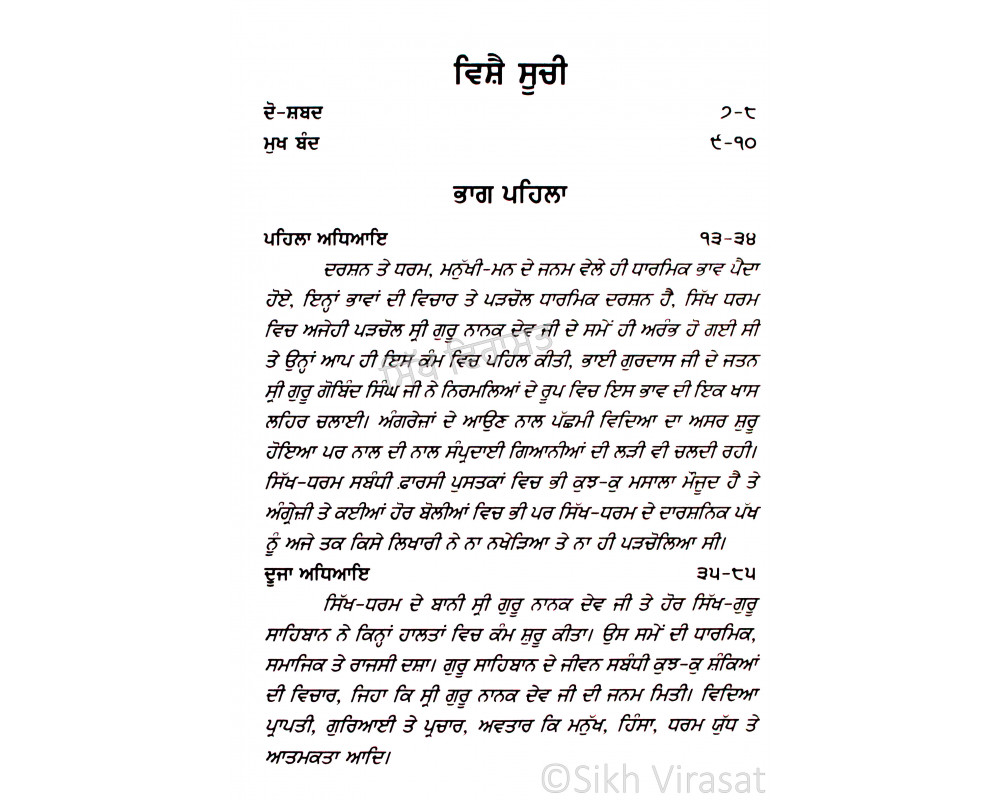 ਵਿਸ਼ੈ ਸੂਚੀ
ਦੋ-ਸ਼ਬਦ ੭-੮
ਮੁਖ ਬੰਦ ੯-੧੦
ਭਾਗ ਪਹਿਲਾ
ਪਹਿਲਾ ਅਧਿਆਇ ੧੩-੩੪
ਦਰਸ਼ਨ ਤੇ ਧਰਮ, ਮਨੁੱਖੀ-ਮਨ ਦੇ ਜਨਮ ਵੇਲੇ ਹੀ ਧਾਰਮਿਕ ਭਾਵ ਪੈਦਾ
ਹੋਏ, ਇਨ੍ਹਾਂ ਭਾਵਾਂ ਦੀ ਵਿਚਾਰ ਤੇ ਪੜਚੋਲ ਧਾਰਮਿਕ ਦਰਸ਼ਨ ਹੈ, ਸਿੱਖ ਧਰਮ
ਵਿਚ ਅਜੇਹੀ ਪੜਚੋਲ ਸ੍ਰੀ ਗੁਰੂ ਨਾਨਕ ਦੇਵ ਜੀ ਦੇ ਸਮੇਂ ਹੀ ਅਰੰਭ ਹੋ ਗਈ ਸੀ
ਤੇ ਉਨ੍ਹਾਂ ਆਪ ਹੀ ਇਸ ਕੰਮ ਵਿਚ ਪਹਿਲ ਕੀਤੀ, ਭਾਈ ਗੁਰਦਾਸ ਜੀ ਦੇ ਜਤਨ
ਸ੍ਰੀ ਗੁਰੂ ਗੋਬਿੰਦ ਸਿੰਘ ਜੀ ਨੇ ਨਿਰਮਲਿਆਂ ਦੇ ਰੂਪ ਵਿਚ ਇਸ ਭਾਵ ਦੀ ਇਕ ਖਾਸ
ਲਹਿਰ ਚਲਾਈ। ਅੰਗਰੇਜ਼ਾਂ ਦੇ ਆਉਣ ਨਾਲ ਪੱਛਮੀ ਵਿਦਿਆ ਦਾ ਅਸਰ ਸ਼ੁਰੂ
ਹੋਇਆ ਪਰ ਨਾਲ ਦੀ ਨਾਲ ਸੰਪ੍ਰਦਾਈ ਗਿਆਨੀਆਂ ਦੀ ਲੜੀ ਵੀ ਚਲਦੀ ਰਹੀ।
ਸਿੱਖ-ਧਰਮ ਸਬੰਧੀ ਫ਼ਾਰਸੀ ਪੁਸਤਕਾਂ ਵਿਚ ਭੀ ਕੁਝ-ਕੁ ਮਸਾਲਾ ਮੌਜੂਦ ਹੈ ਤੇ
ਅੰਗ੍ਰੇਜ਼ੀ ਤੇ ਕਈਆਂ ਹੋਰ ਬੋਲੀਆਂ ਵਿਚ ਭੀ ਪਰ ਸਿੱਖ-ਧਰਮ ਦੇ ਦਾਰਸ਼ਨਿਕ ਪੱਖ
ਨੂੰ ਅਜੇ ਤਕ ਕਿਸੇ ਲਿਖਾਰੀ ਨੇ ਨਾ ਨਖੇੜਿਆ ਤੇ ਨਾ ਹੀ ਪੜਚੋਲਿਆ ਸੀ।
ਦੂਜਾ ਅਧਿਆਇ ੩੫-੮੫
ਸਿੱਖ-ਧਰਮ ਦੇ ਬਾਨੀ ਸ੍ਰੀ ਗੁਰੂ ਨਾਨਕ ਦੇਵ ਜੀ ਤੇ ਹੋਰ ਸਿੱਖ-ਗੁਰੂ
ਸਾਹਿਬਾਨ ਨੇ ਕਿਨ੍ਹਾਂ ਹਾਲਤਾਂ ਵਿਚ ਕੰਮ ਸ਼ੁਰੂ ਕੀਤਾ। ਉਸ ਸਮੇਂ ਦੀ ਧਾਰਮਿਕ,
ਸਮਾਜਿਕ ਤੇ ਰਾਜਸੀ ਦਸ਼ਾ। ਗੁਰੂ ਸਾਹਿਬਾਨ ਦੇ ਜੀਵਨ ਸਬੰਧੀ ਕੁਝ-ਕੁ ਸ਼ੰਕਿਆਂ
ਦੀ ਵਿਚਾਰ, ਜਿਹਾ ਕਿ ਸ੍ਰੀ ਗੁਰੂ ਨਾਨਕ ਦੇਵ ਜੀ ਦੀ ਜਨਮ ਮਿਤੀ। ਵਿਦਿਆ
ਪ੍ਰਾਪਤੀ, ਗੁਰਿਆਈ ਤੇ ਪ੍ਰਚਾਰ, ਅਵਤਾਰ ਕਿ ਮਨੁੱਖ, ਹਿੰਸਾ, ਧਰਮ ਯੁੱਧ ਤੇ
ਆਤਮਕਤਾ ਆਦਿ।
ਸਿੱਖ ਵਿਰਾਸਤ
©Sikh Virasat